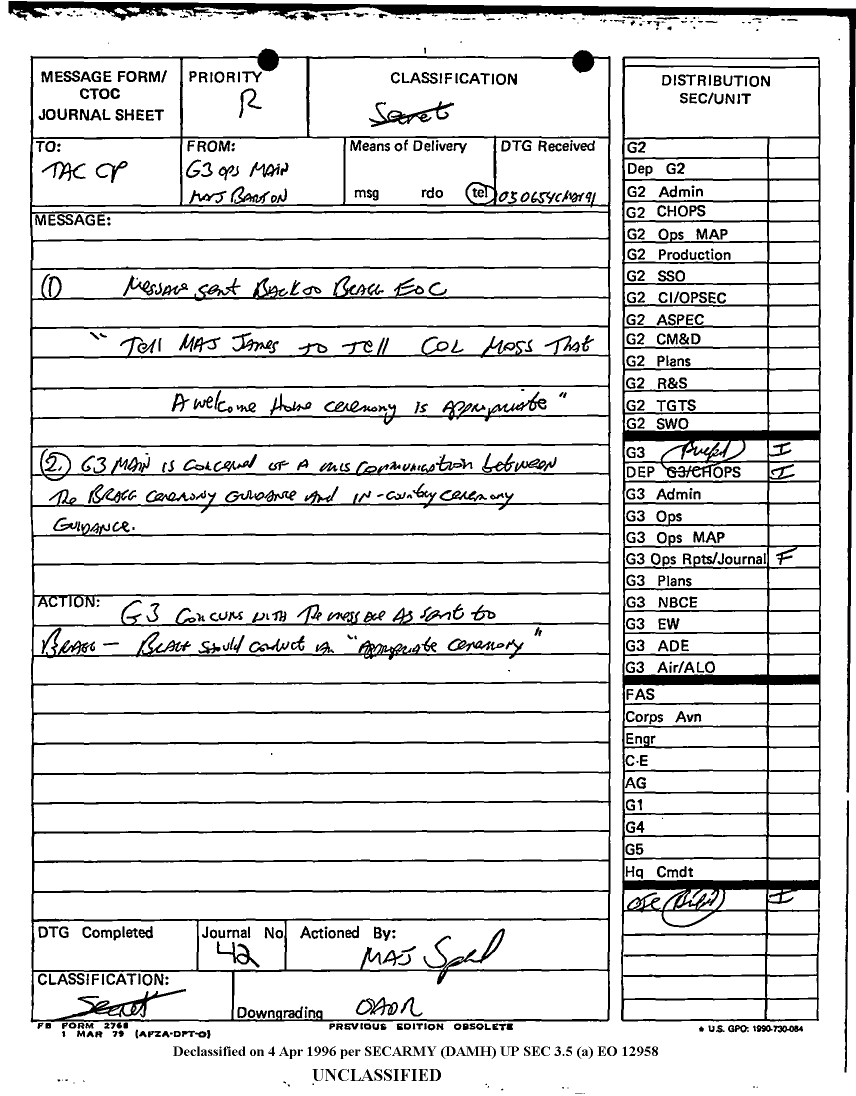 MESSAGE FORM/
CTOC
JOURNAL SHEET
PRIORITY
R
CLASSIFICATION
Secret
TO:
TAC CP
FROM:
G3 OPS MAIN
MAJ BARTON
Means of Delivery
msg rdo tel
DTG Received
030654CMAR91
MESSAGE:
(1) MESSAGE SENT BACK TO BRAGG EOC
" Tell MAJ James TO Tell COL MOSS That
A welcome Home ceremony is Appropriate "
(2.) G3 MAIN IS CONCERNED OF A MISCOMMUNICATION between
The BRAGG CEREMONY GUIDANCE and IN-Country CEREMONY
GUIDANCE.
ACTION:
G3 CONCURS WITH The MESSAGE AS SENT to
BRAGG — BRAGG Should conduct an "Appropriate Ceremony"
DTG Completed
Journal No
42
Actioned By:
MAJ
CLASSIFICATION:
Secret
Downgrading OADR
FB FORM 2768
1 MAR 79 (AFZA-DPT-O)
PREVIOUS EDITION OBSOLETE
DISTRIBUTION
SEC/UNIT
G2
Dep G2
G2 Admin
G2 CHOPS
G2 Ops MAP
G2 Production
G2 SSO
G2 CI/OPSEC
G2 ASPEC
G2 CM&D
G2 Plans
G2 R&S
G2 TGTS
G2 SWO
G3 I
DEP G3/CHOPS I
G3 Admin
G3 Ops
G3 Ops MAP
G3 Ops Rpts/Journal F
G3 Plans
G3 NBCE
G3 EW
G3 ADE
G3 Air/ALO
FAS
Corps Avn
Engr
C-E
AG
G1
G4
G5
Hq Cmdt
I
* U.S. GPO: 1990-730-084
Declassified on 4 Apr 1996 per SECARMY (DAMH) UP SEC 3.5 (a) EO 12958
UNCLASSIFIED